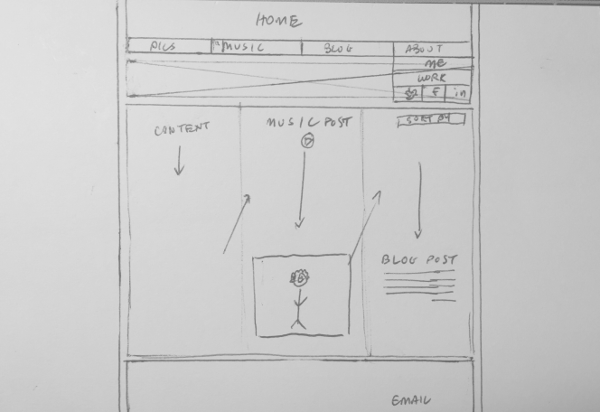 HOME
PICS MUSIC BLOG ABOUT
ME
WORK
f in
CONTENT
MUSIC POST
SORT BY
BLOG POST
EMAIL